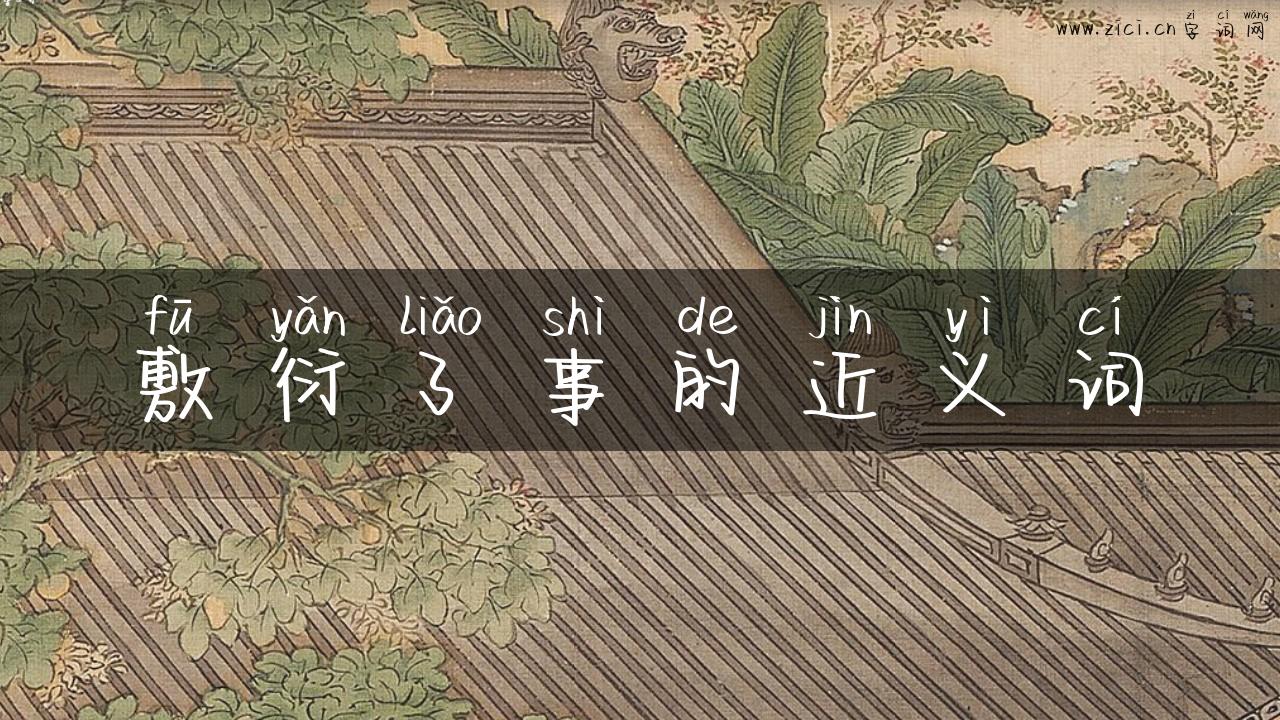 zì cí wǎng
www.zici.cn 字词网
fū yǎn liǎo shì de jìn yì cí
敷衍了事的近义词